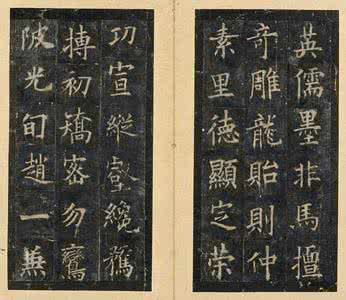 英儒墨非馬擅
奇雕龍貽則仲
素里德顯定荣
功宣縱壑纔騖
摶初矯密勿
陂光旬趙一兼